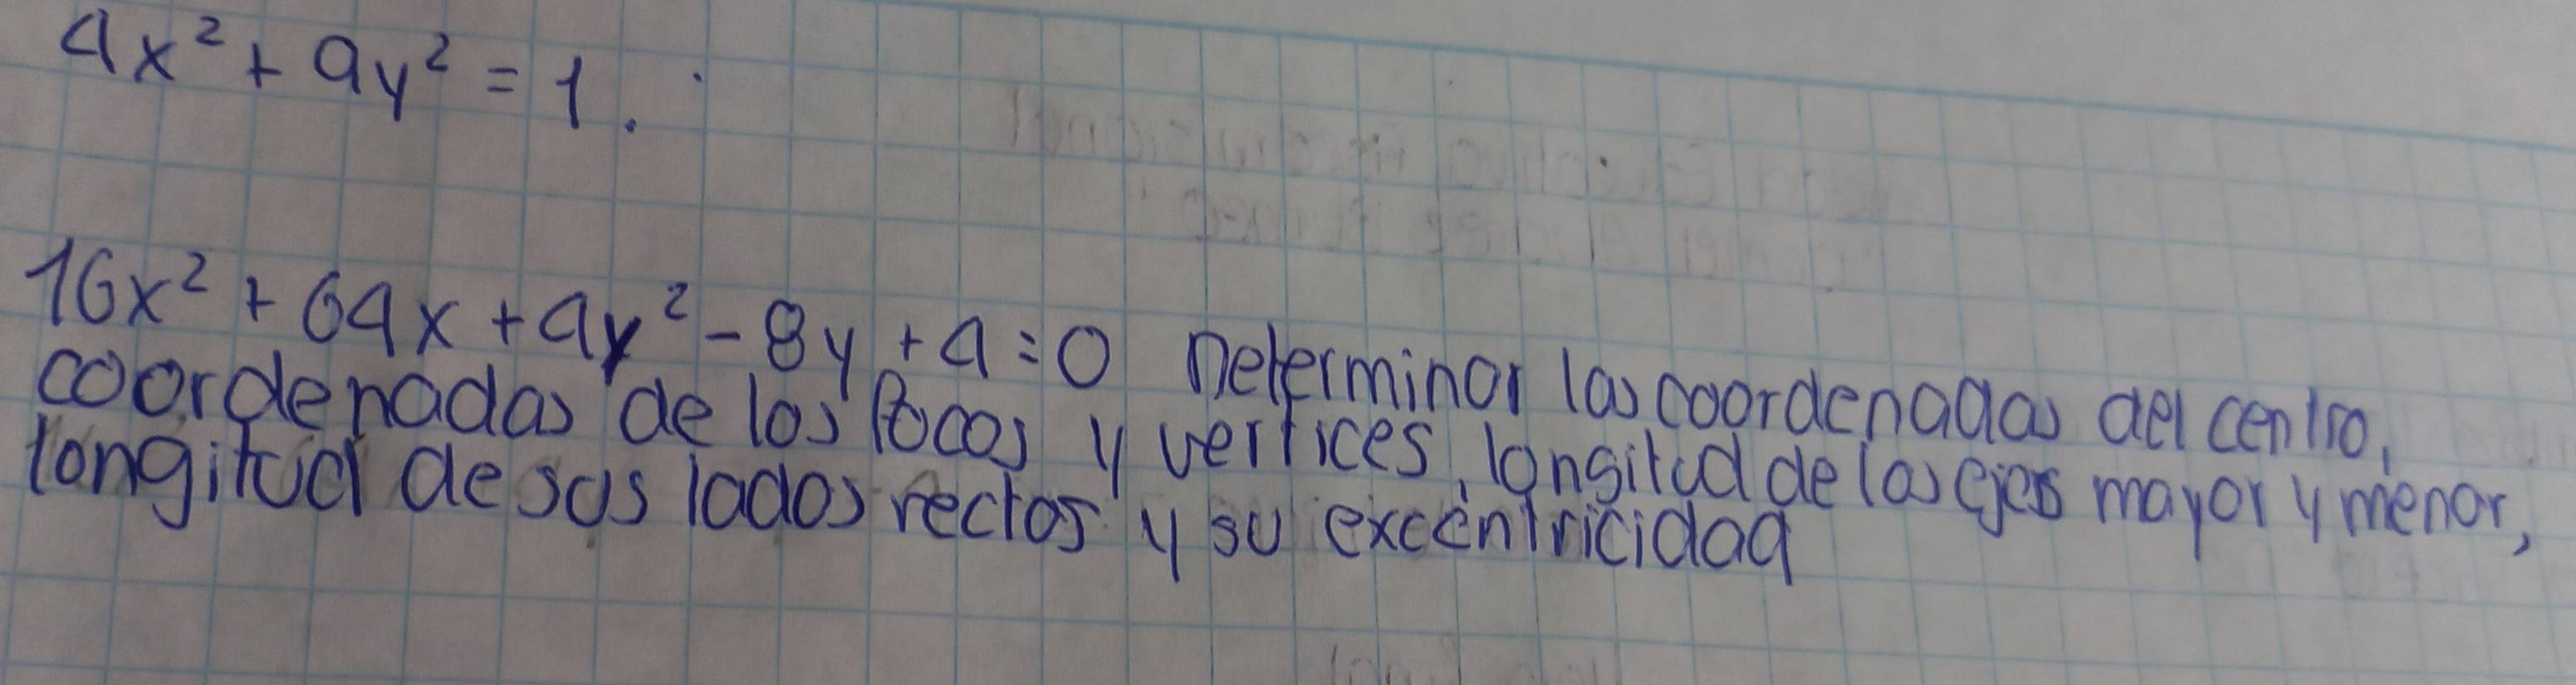 4x² + 9y² = 1.
16x² + 64x + 4y² - 8y + 4 = 0 Determinar las coordenadas del centro,
coordenadas de los focos y vertices, longitud de los ejes mayor y menor,
longitud de sus lados rectos y su excentricidad